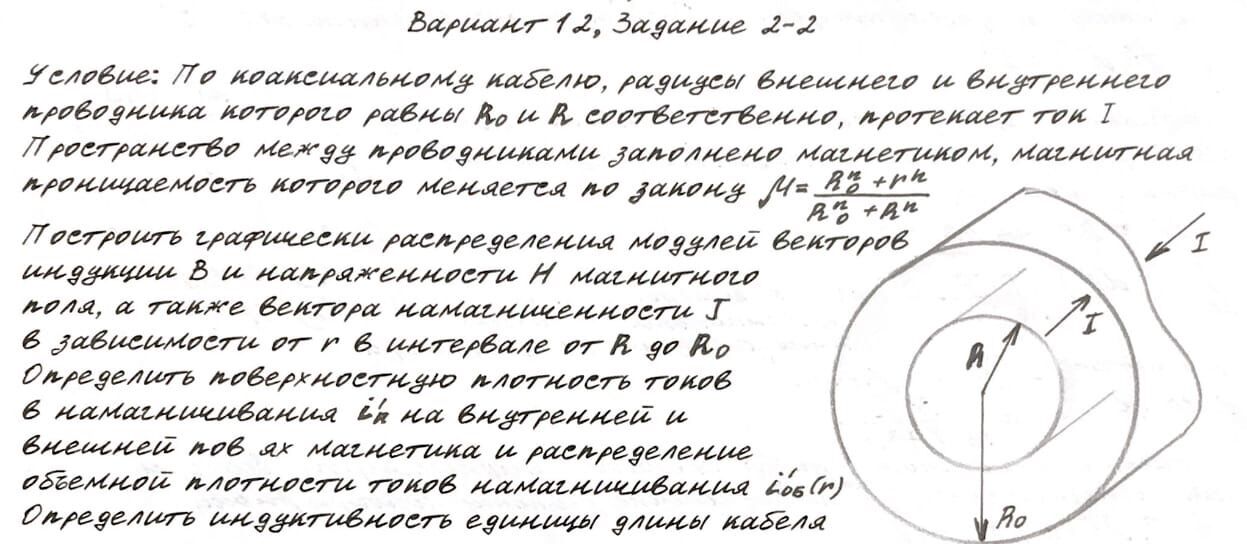 Вариант 12, Задание 2-2
Условие: По коаксиальному кабелю, радиусы внешнего и внутреннего
проводника которого равны R₀ и R соответственно, протекает ток I
Пространство между проводниками заполнено магнетиком, магнитная
проницаемость которого меняется по закону μ = (R₀ⁿ + rⁿ)/(R₀ⁿ + Rⁿ)
Построить графически распределения модулей векторов
индукции B и напряженности H магнитного
поля, а также вектора намагниченности J
в зависимости от r в интервале от R до R₀
Определить поверхностную плотность токов
в намагничивания i'ₙ на внутренней и
внешней пов ях магнетика и распределение
объемной плотности токов намагничивания i'об(r)
Определить индуктивность единицы длины кабеля
I
I
R
R₀